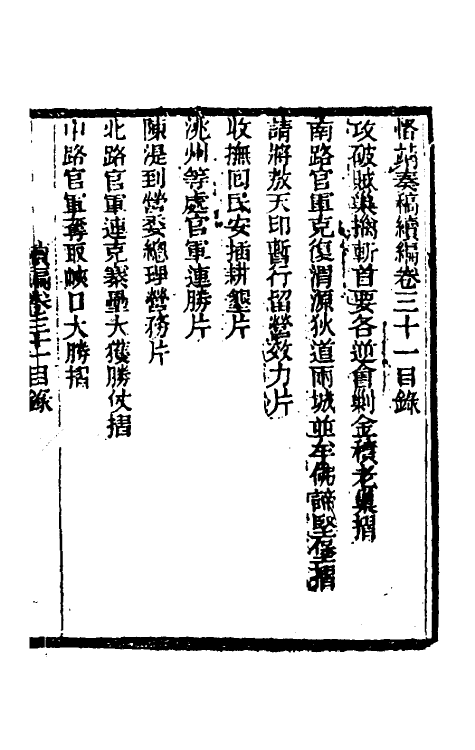 恪靖奏稿續編卷三十一目錄
攻破賊巢擒斬首要各逆會剿金積老巢摺
南路官軍克復渭源狄道兩城並牟佛諦堅摺
請將敖天印暫行留營效力片
收撫回民安插耕墾片
洮州等處官軍連勝片
陳湜到營委總理營務片
北路官軍連克寨壘大獲勝仗摺
中路官軍奪取峽口大勝摺
續編卷三十一目錄